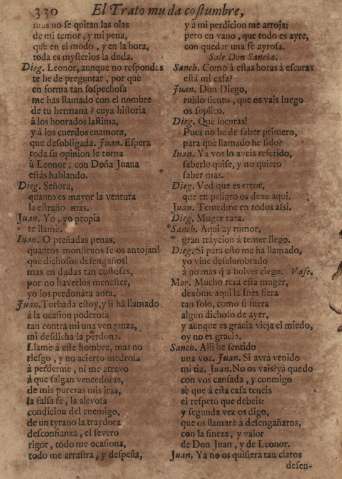 330 El Trato muda costumbre,
mas no se quitan las olas
de mi temor, y mi pena,
que en el modo, y en la hora,
toda es mysterios la duda.
Dieg. Leonor, aunque no respondas
te he de preguntar, por que
en forma tan sospechosa
me has llamado con el nombre
de tu hermana? cuya historia
à los honrados lastima,
y à los cuerdos enamora,
que desobligada. Juan. Espera
toda su opinion se torna
à Leonor, con Doña Juana
estàs hablando.
Dieg. Señora,
quanto es mayor la ventura
la estraño mas.
Juan. Yo, yo propia
te llamè.
Juan. O preñadas penas,
quantos monstruos se os antojan!
que dichosos desengaños!
mas en dudas tan costosas,
por no haverlos menester,
yo los perdonàra aora.
Juan. Turbada estoy, y si hà llamado
à la ocasion poderosa
tan contra mi una venganza,
mi desdicha la perdona.
Llamè à este hombre, mas no
riesgo, y no acierto medrosa
à perderme, ni me atrevo
à que salgan vencedoras,
de mis purezas mis iras,
la falsa fè, la alevosa
condicion del enemigo,
de un tyrano la traydora
desconfianza, el severo
rigor, todo me ocasiona,
todo me arrastra, y despeña,
y à mi perdicion me arroja;
pero en vano, que todo es ayre,
con quedar una fè ayrosa.
Sale Don Sancho.
Sanch. Como à estas horas à escuras
està mi casa?
Juan. Don Diego,
ruido siento, que os vais luego
os suplico.
Dieg. Que locuras!
Pues no he de saber primero,
para què llamado he sido?
Juan. Ya vos lo aveis referido,
saberlo quise, y no quiero
saber mas.
Dieg. Ved que es error,
que en peligro os dexe aqui.
Juan. Tenedme en todos assi.
Dieg. Muger rara.
Sanch. Aqui ay rumor,
gran traycion à temer llego.
Dieg. Si para esto me ha llamado,
yo vine desalumbrado
à no mas q̃ a bolver ciego. Vase.
Mar. Mucho reza esta muger,
desdone aqui la fies fiera
tan solo, como si fuera
algun dichoso de ayer,
y aunque es gracia vieja el miedo,
oy no es gracia.
Sanch. Alli he sentido
una voz. Juan. Si avrà venido
mi tia. Juan. No os vais! ya quedo
con vos cansada, y conmigo
se que à esta casa teneis
el respeto que debeis
y segunda vez os digo,
que os llamarè à desengañaros,
con la fineza, y valor
de Don Juan, y de Leonor.
Juan. Ya no os quisiera tan claros
desen-